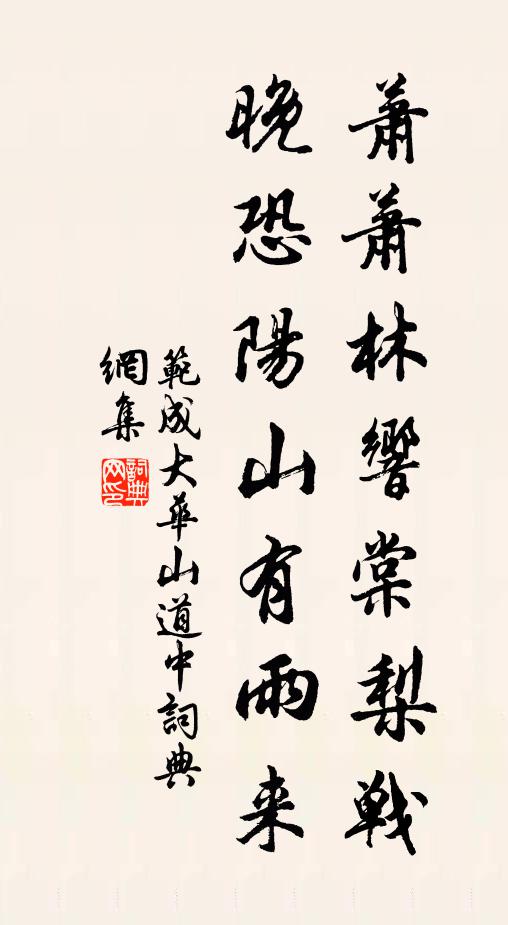 蕭蕭林響棠梨戦
晚恐陽山有雨来
範成大華山道中詞典
網集
詞典
网印